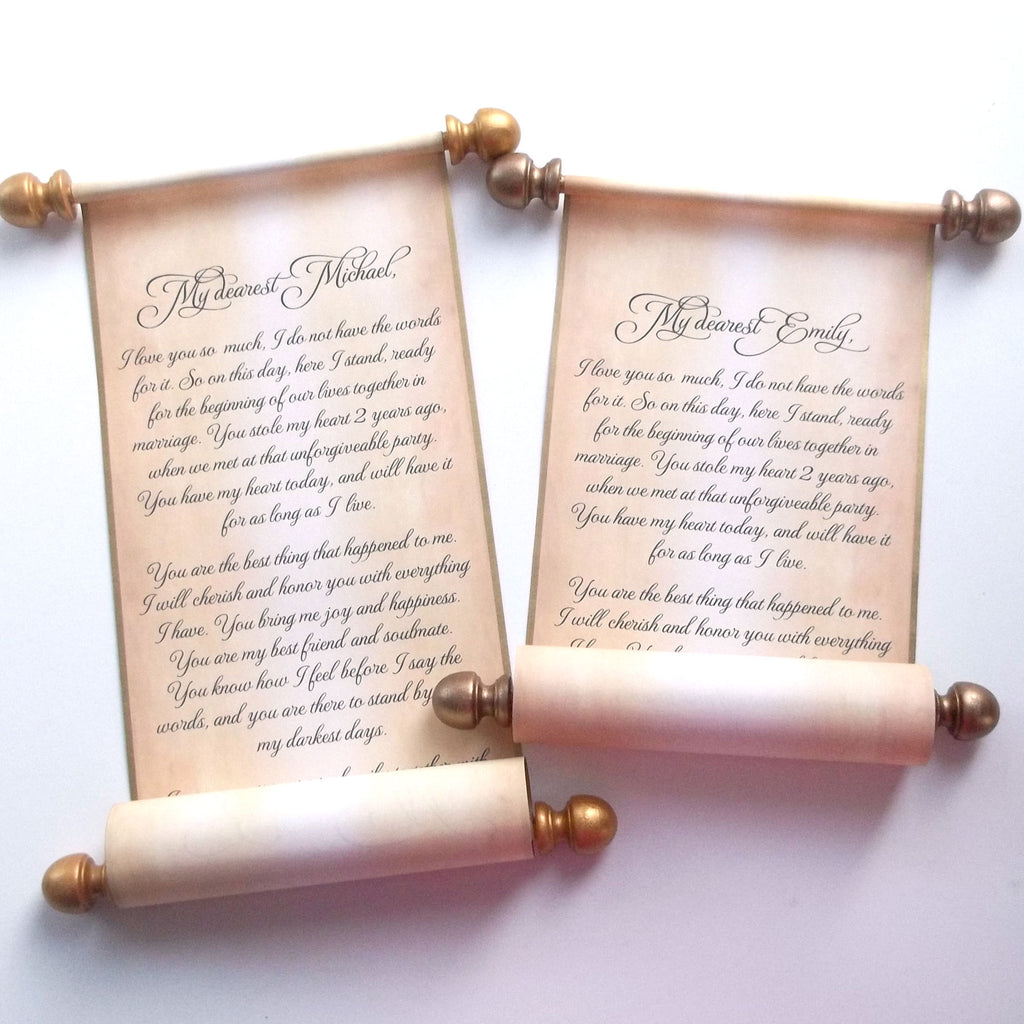 My dearest Michael,
I love you so much, I do not have the words
for it. So on this day, here I stand, ready
for the beginning of our lives together in
marriage. You stole my heart 2 years ago,
when we met at that unforgiveable party.
You have my heart today, and will have it
for as long as I live.
You are the best thing that happened to me.
I will cherish and honor you with everything
I have. You bring me joy and happiness.
You are my best friend and soulmate.
You know how I feel before I say the
words, and you are there to stand by
my darkest days.
My dearest Emily,
I love you so much, I do not have the words
for it. So on this day, here I stand, ready
for the beginning of our lives together in
marriage. You stole my heart 2 years ago,
when we met at that unforgiveable party.
You have my heart today, and will have it
for as long as I live.
You are the best thing that happened to me.
I will cherish and honor you with everything